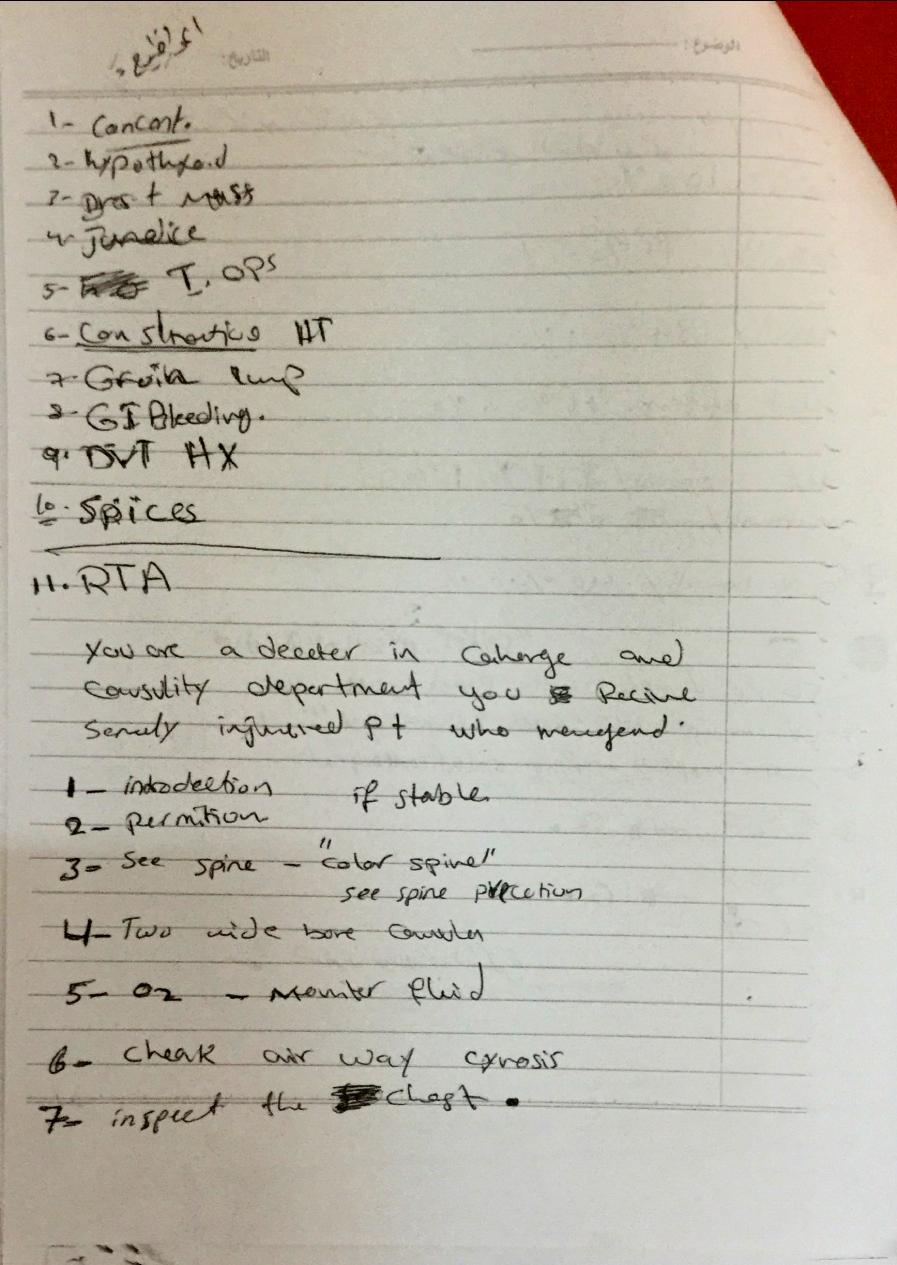 المواضيع:
التاريخ:
الموضوع:
1- Concent.
2- hypothyroid
3- Brest Mass
4- Jundice
5- T. OPS
6- Constructive HT
7- Groin lump
8- GI Bleeding.
9. DVT HX
10. Spices
11. RTA
You are a decoter in Caherge and
Causulity department you Recive
injured Pt who
1- introdection if stable
2- permition
3- See spine - "color spine"
see spine precution
4- Two wide bore
5- O2 - Moniter fluid
6- cheak air way cynosis
7- inspect the chest.